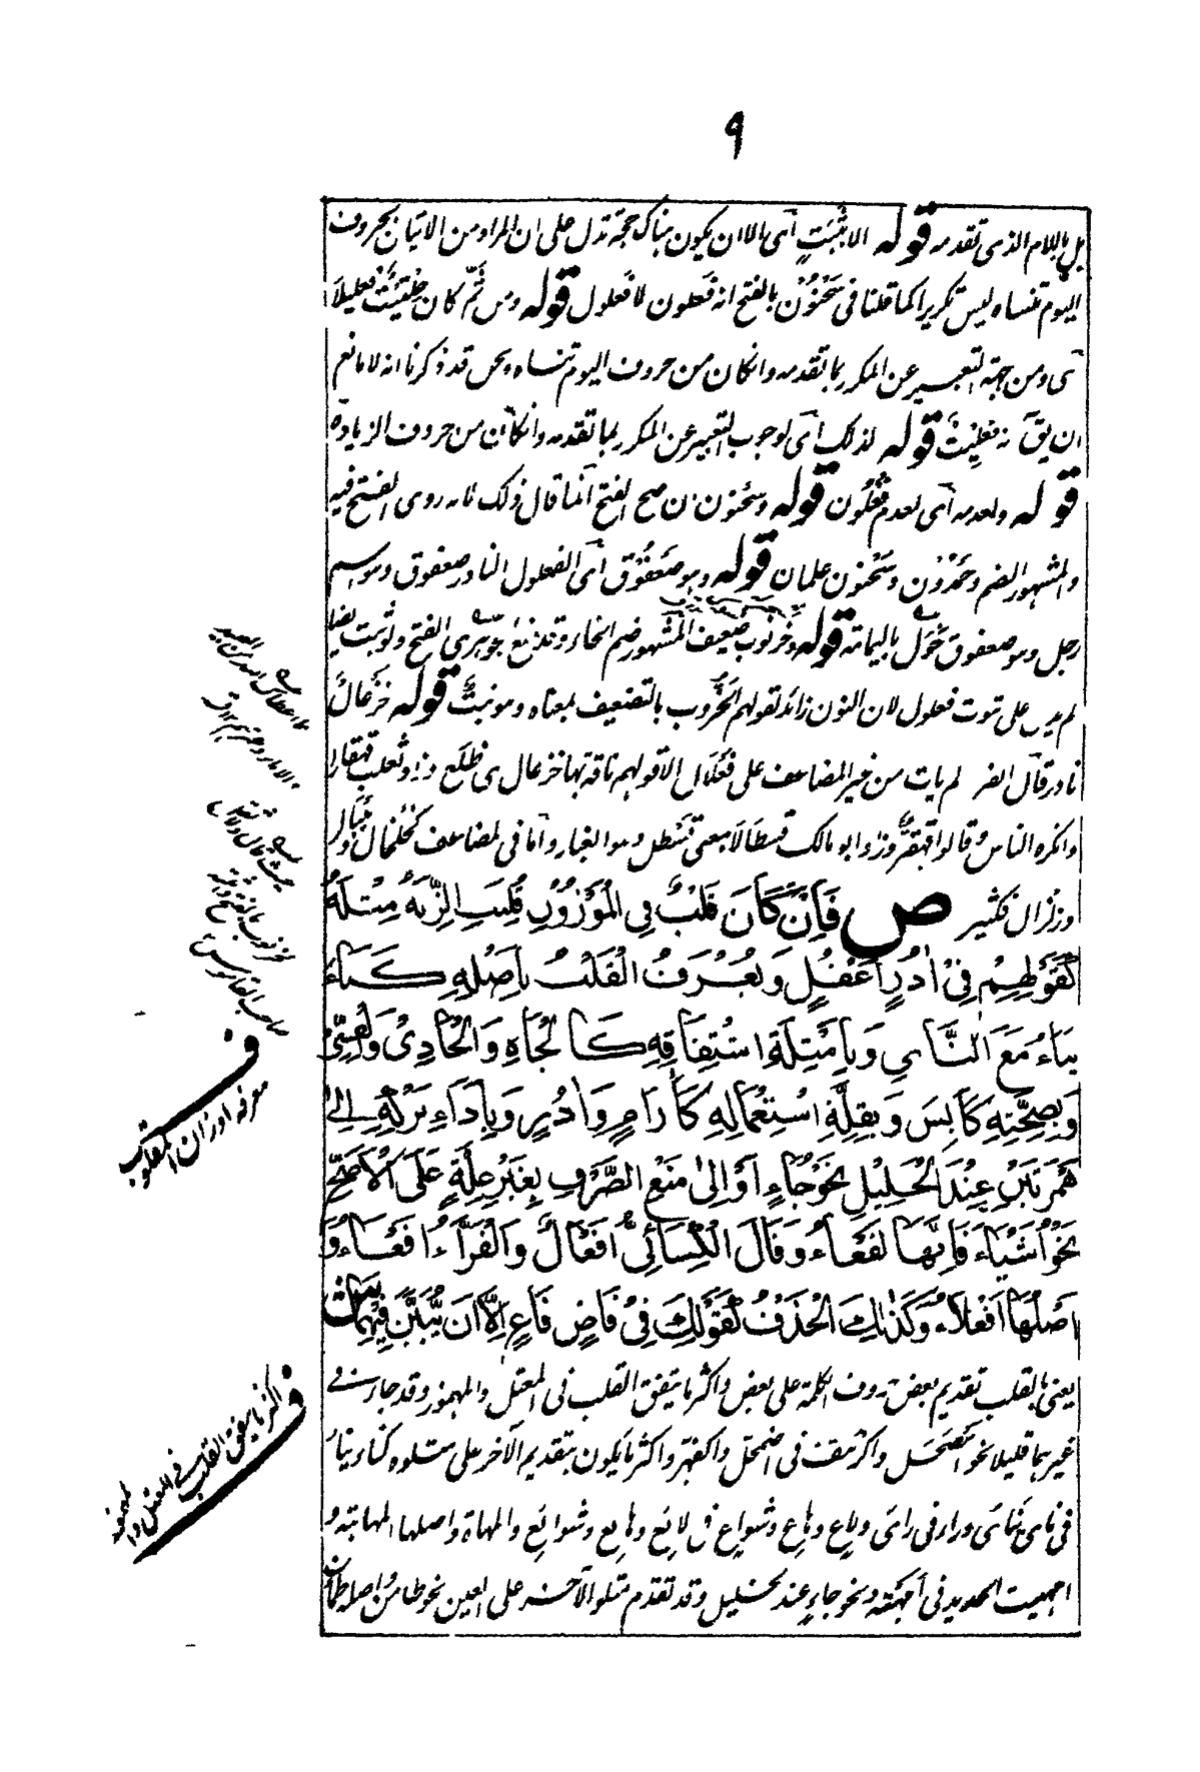 ٩
بل باللام الذى تقدمه قوله الا بثبت أى بالا ان يكون هناك حجة تدل على ان المراد من الاتيان بحروف
اليوم تنساه ليس تكريرا كما قلنا فى سحنون بالفتح انه فعلون لا فعلول قوله ومن ثم كان حلتيت فعليلا
أى ومن جهة التعبير عن المكرر بما تقدمه وانكان من حروف اليوم تنساه ونحن قد ذكرنا انه لا مانع
ان يق انه فعليت قوله لذلك أى لوجوب التعبير عن المكرر بما تقدمه وانكان من حروف الزيادة
قوله ولعدمه أى لعدم فعلون قوله وسحنون ان صح الفتح انما قال ذلك لانه روى الفتح فيه
والمشهور الضم وحمدون وسحنون علمان قوله وهو صعفوق أى الفعلول النادر صعفوق وهو اسم
رجل وبنو صعفوق خول باليمامة قوله وخرنوب ضعيف المشهور ضم الخاء وقد منع الجوهرى الفتح ولو ثبت ايضا
لم يدل على ثبوت فعلول لان النون زائد لقولهم الخروب بالتضعيف بمعناه وهو نبت قوله خزعال
نادر قال الفراء لم يات من غير المضاعف على فعلال الا قولهم ناقة بها خزعال اى ظلع وزاد ثعلب قهقار
وانكره الناس وقالوا قهقر وزاد ابو مالك قسطالا بمعنى قسطل وهو الغبار واما فى المضاعف كخلخال وبلبال
وزلزال فكثير ص فَاِنْ كَانَ قَلْبٌ فِى الْمَوْزُوْنِ قُلِبَتِ الزِّنَةُ مِثْلَهُ
كَقَوْلِهِمْ فِىْ اٰدُرٍ اَعْفُلٍ وَيُعْرَفُ الْقَلْبُ بِاَصْلِهِ كَنَاءَ
يَنَاءُ مَعَ النَّأْىِ وَبِاَمْثِلَةِ اشْتِقَاقِهِ كَالْجَاهِ وَالْحَادِىْ وَالْقِسِىِّ
وَبِصِحَّتِهِ كَاَيِسَ وَبِقِلَّةِ اسْتِعْمَالِهِ كَاٰرَامٍ وَاٰدُرٍ وَبِاَدَاءِ تَرْكِهِ اِلٰى
هَمْزَتَيْنِ عِنْدَ الْخَلِيْلِ نَحْوُ جَاءٍ اَوْ اِلٰى مَنْعِ الصَّرْفِ بِغَيْرِ عِلَّةٍ عَلَى الْاَصَحِّ
نَحْوُ اَشْيَاءَ فَاِنَّهَا لَفْعَاءُ وَقَالَ الْكِسَائِىُّ اَفْعَالٌ وَالْفَرَّاءُ اَفْعَاءُ وَ
اَصْلُهَا اَفْعِلَاءُ وَكَذٰلِكَ الْحَذْفُ كَقَوْلِكَ فِىْ قَاضٍ فَاعٍ اِلَّا اَنْ يُّبَيَّنَ فِيْهِمَا
يعنى بالقلب تقديم بعض حروف الكلمة على بعض واكثر ما يتفق القلب فى المعتل والمهموز وقد جاء فى
غيرهما قليلا نحو امضحل واكرهف فى اضمحل واكفهر واكثر ما يكون بتقديم الآخر على متلوه كناء يناء
فى نأى ينأى وراء فى رأى ولاع وهاع وشواع فى لائع وهائع وشوائع والمهاة واصلها الماهة و
امهيت الحديد فى أمهته ونحو جاء عند الخليل وقد تقدم متلو الآخر على العين نحو طأمن واصله طمأن
ف
معرفة اوزان المقلوب
ف
اكثر ما يتفق القلب فى المعتل والمهموز